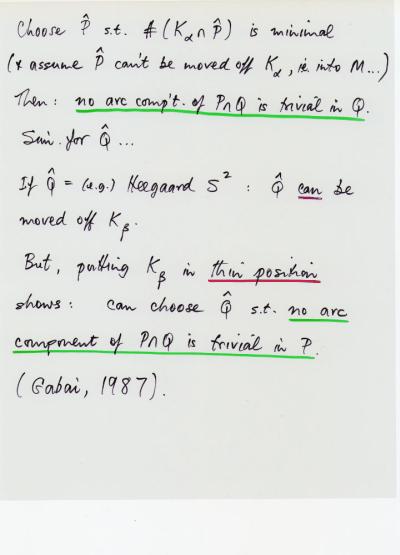 Choose P̂ s.t. #(K_α ∩ P̂) is minimal
(& assume P̂ can't be moved off K_α, ie. into M...)
Then: no arc comp't. of P∩Q is trivial in Q.
Sim. for Q̂ ...
If Q̂ = (e.g.) Heegaard S² : Q̂ can be
moved off K_β.
But, putting K_β in thin position
shows: can choose Q̂ s.t. no arc
component of P∩Q is trivial in P.
(Gabai, 1987).